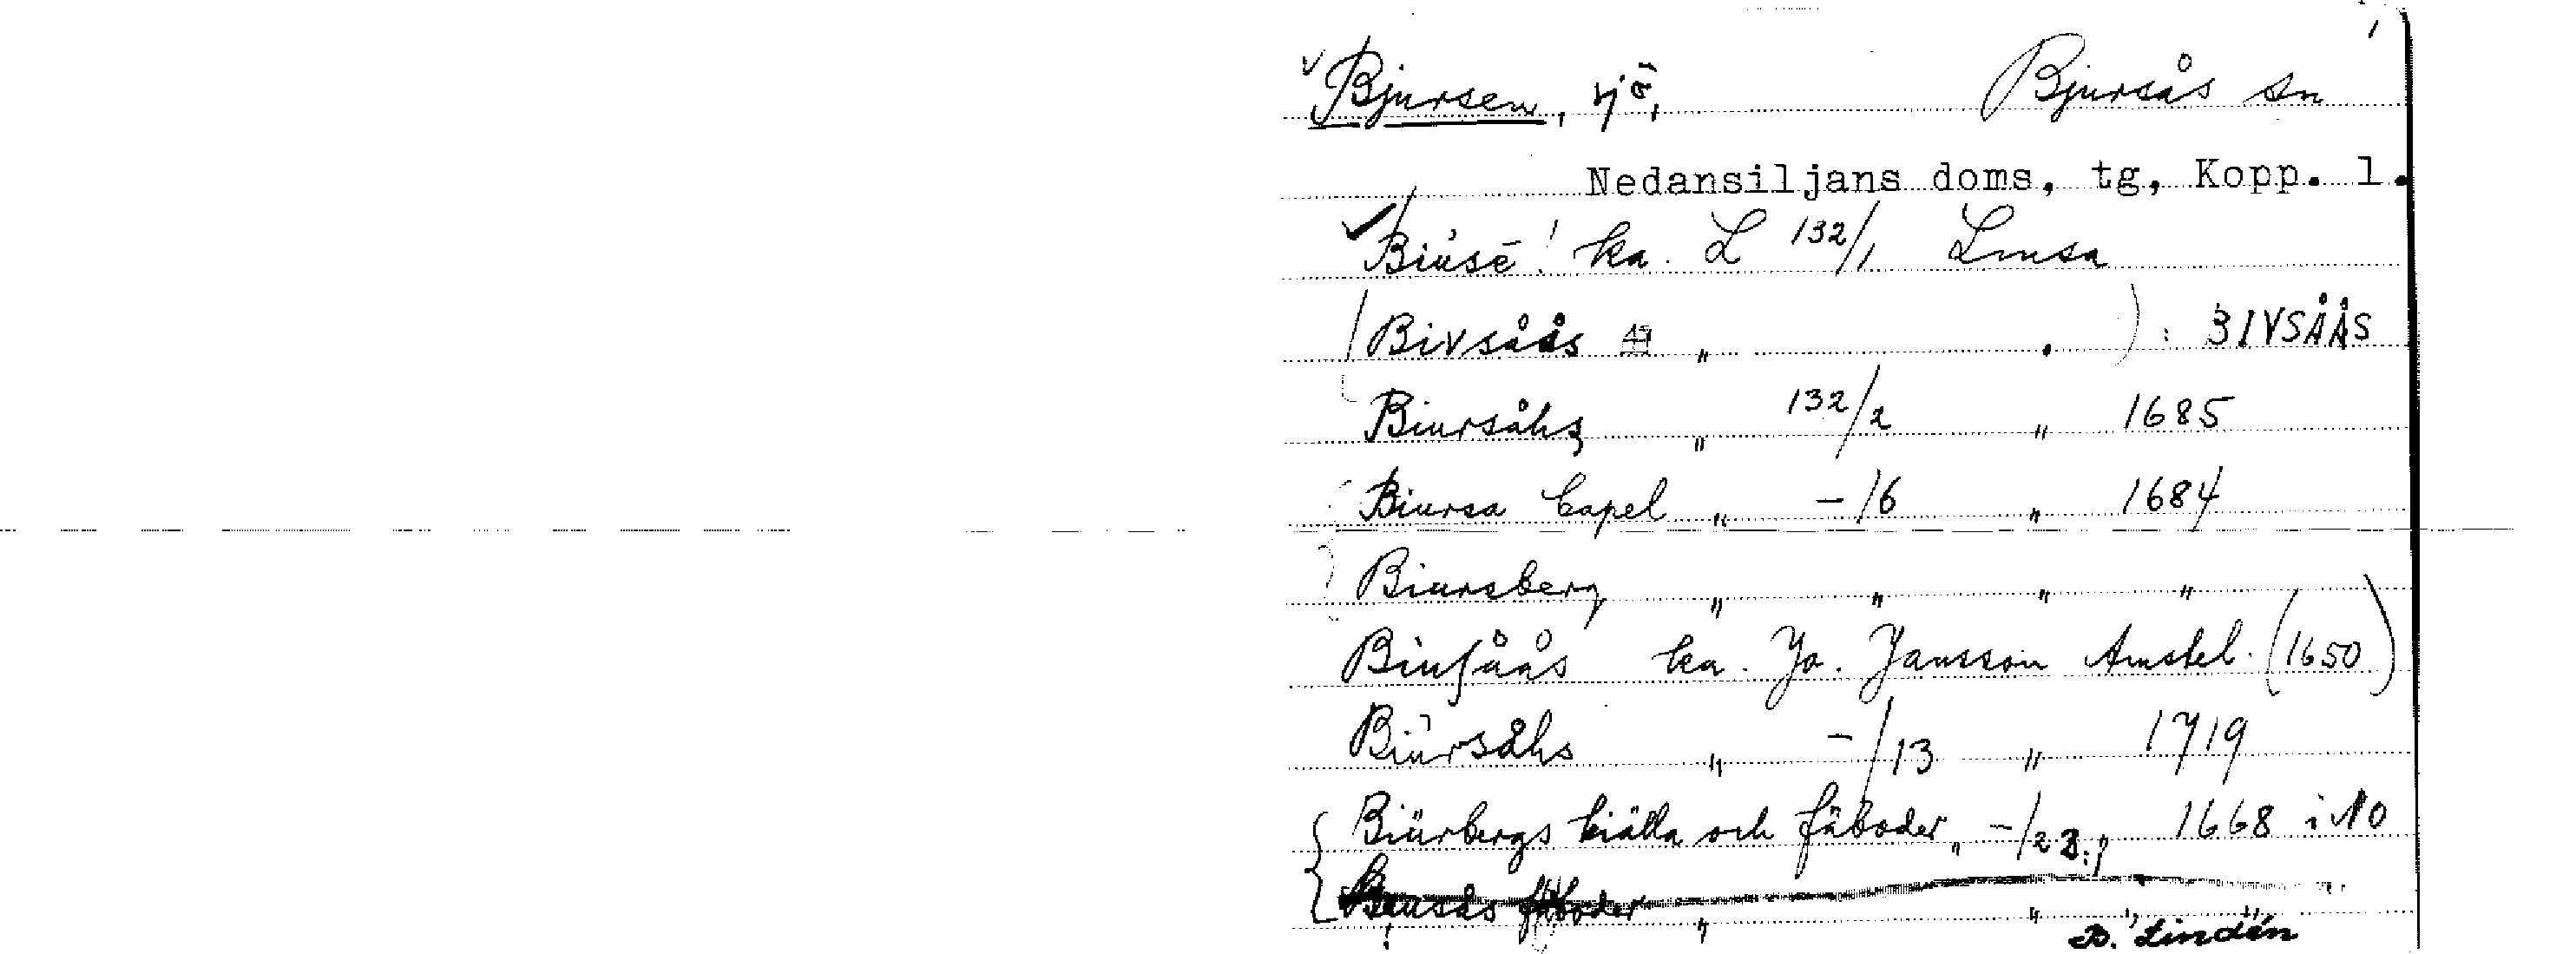 Bjursen, sjö, Bjursås sn
Nedansiljans doms, tg, Kopp. l.
Biúsē! ka. L 132/1 Lmsa
(Bivsåås " " ) : BIVSÅÅS
Biursåhs " 132/2 " 1685
Biursa Capel " -/6 " 1684
Biursberg " " " "
Biuſåås ka. Jo. Jansson Amstel. (1650)
Biúrsåhs " -/13 " 1719
Biürbergs kiälla och fäboder " -/23 " 1668 i NO
Biusås fäboder " " " "
B. Lindén